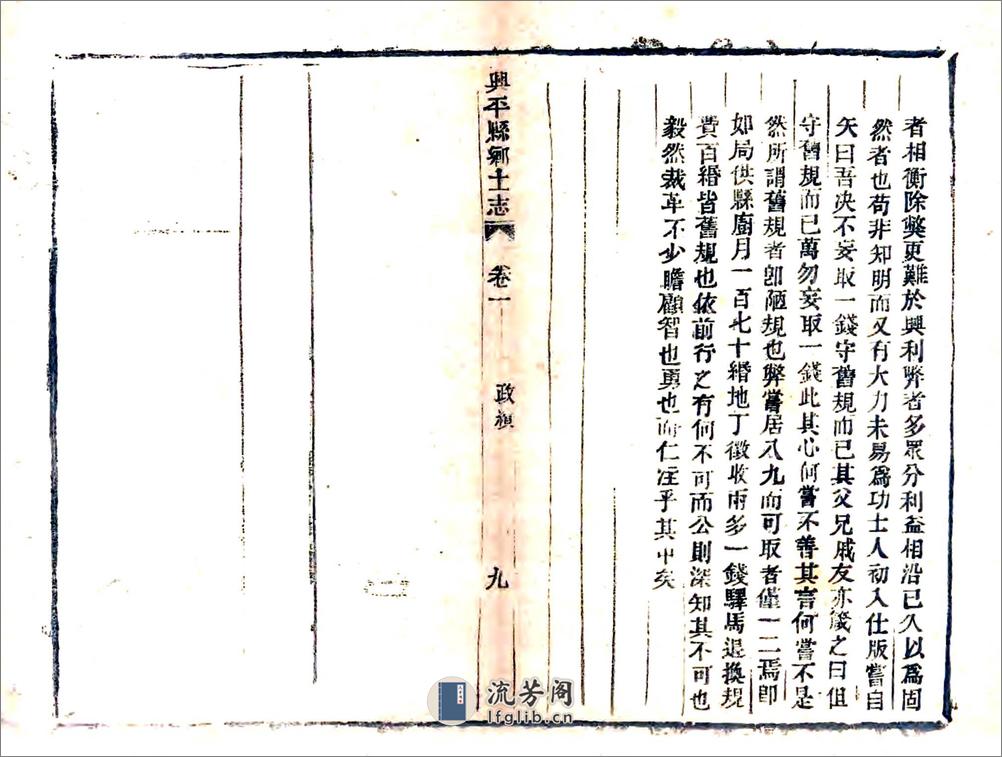 者相衡除獘更難於興利弊者多眾分利益相沿已久以爲固
然者也苟非知明而又有大力未易爲功士人初入仕版嘗自
矢曰吾决不妄取一錢守舊規而已其父兄戚友亦箴之曰但
守舊規而已萬勿妄取一錢此其心何嘗不善其言何嘗不是
然所謂舊規者卽陋規也弊嘗居八九而可取者僅一二焉卽
如局供縣廚月一百七十緡地丁徵收兩多一錢驛馬退換規
費百緡皆舊規也依前行之有何不可而公則深知其不可也
毅然裁革不少瞻顧智也勇也而仁注乎其中矣
興平縣鄉土志 卷一 政績 九
流芳阁
lfglib.cn